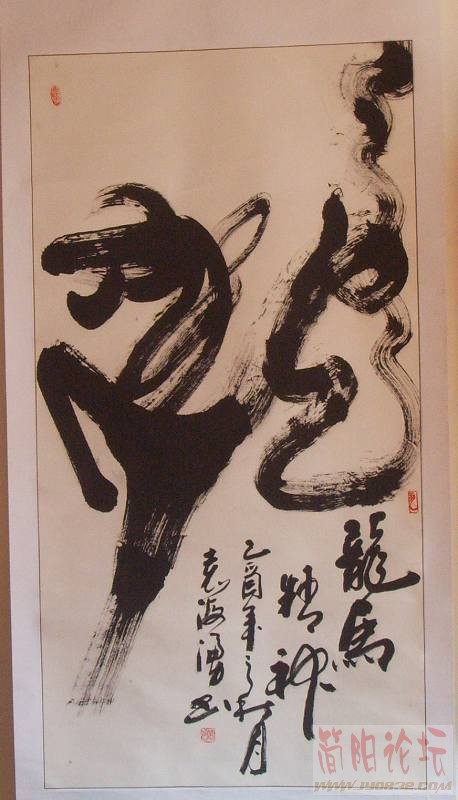 龍
龍馬
精神
乙酉年之秋月
袁海湧书
简阳论坛
WWW.JY0832.COM